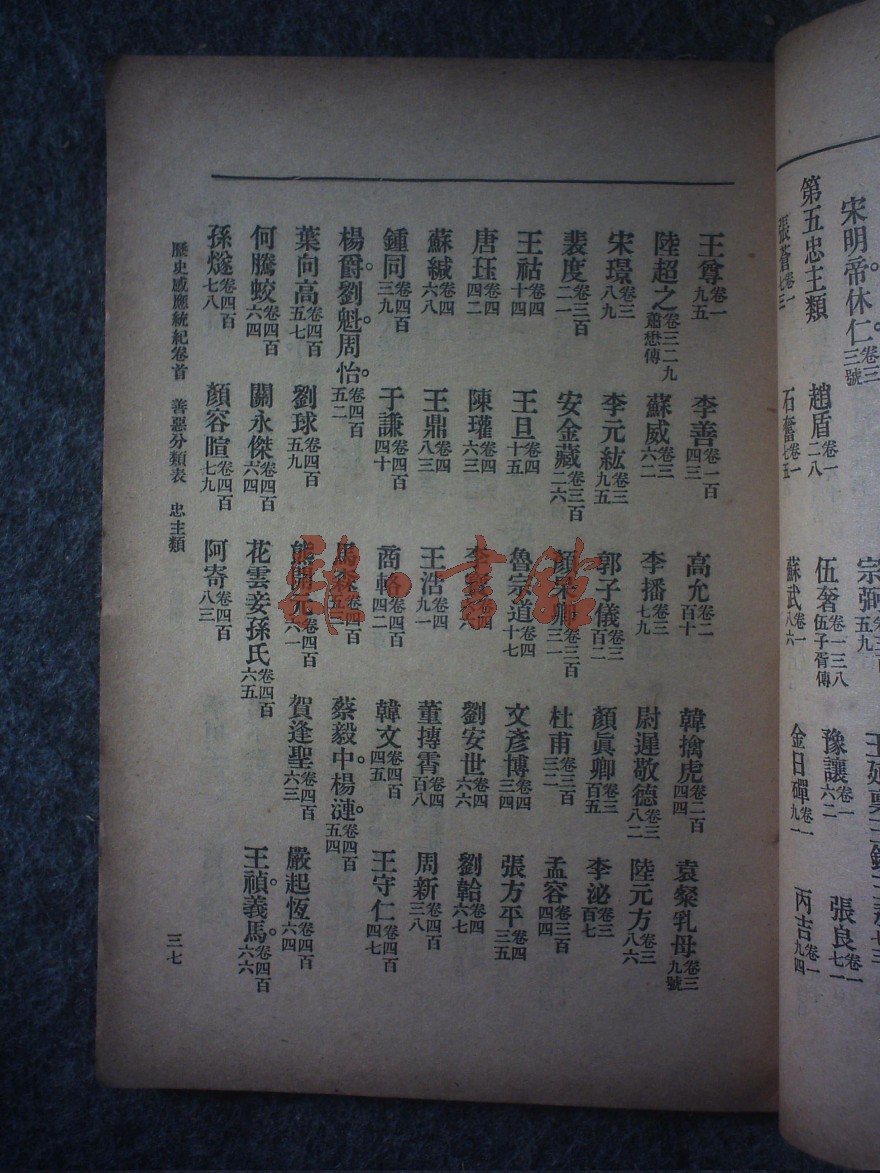 宋明帝休仁。卷三三號
第五忠主類
趙盾卷一二八
伍奢卷一三八伍子胥傳
豫讓卷一六二
張良卷一七一
張蒼卷一七三
石奮卷一七五
蘇武卷一八六
金日磾卷一九一
丙吉卷一九四
王尊卷一九五
李善卷一百四三
高允卷二百十
韓擒虎卷二百四四
袁粲乳母卷三九號
陸超之卷三二九蕭懋傳
蘇威卷三六二
李播卷三七九
尉遲敬德卷三八二
陸元方卷三八六
宋璟卷三八九
李元紘卷三九五
郭子儀卷三百二
顏眞卿卷三百五
李泌卷三百七
裴度卷三百二一
安金藏卷三百二六
顏杲卿卷三百三一
杜甫卷三百三二
孟容卷三百四四
王祜卷四十四
王旦卷四十五
魯宗道卷四十七
文彥博卷四三四
張方平卷四三五
唐珏卷四百四二
陳瓘卷四六三
劉安世卷四六六
劉韐卷四六七
蘇緘卷四六八
王鼎卷四八三
王浩卷四九一
董摶霄卷四百八
周新卷四百三八
鍾同卷四百三九
于謙卷四百四十
商輅卷四百四二
韓文卷四百四五
王守仁卷四百四七
楊爵。劉魁。周怡。卷四百五二
馬森卷四百五三
蔡毅中。楊漣。卷四百五四
葉向高卷四百五七
劉球卷四百五九
熊開元卷四百六一
賀逢聖卷四百六三
嚴起恆卷四百六四
何騰蛟卷四百六四
關永傑卷四百六四
花雲妾孫氏卷四百六五
王禎。義馬。卷四百六六
孫燧卷四百七八
顏容暄卷四百七九
阿寄卷四百八三
歷史感應統紀卷首 善惡分類表 忠主類
三七